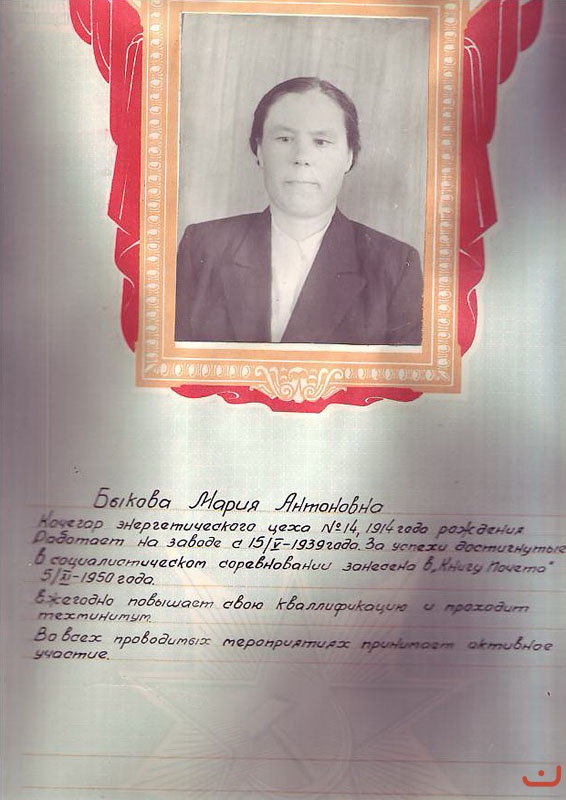 Быкова Мария Антоновна
Кочегар энергетического цеха №14, 1914 года рождения
Работает на заводе с 15/V-1939 года. За успехи достигнутые
в социалистическом соревновании занесена в „Книгу Почета"
5/XI-1950 года.
Ежегодно повышает свою кваллификацию и проходит
техминимум.
Во всех проводимых мероприятиях принимает активное
участие.